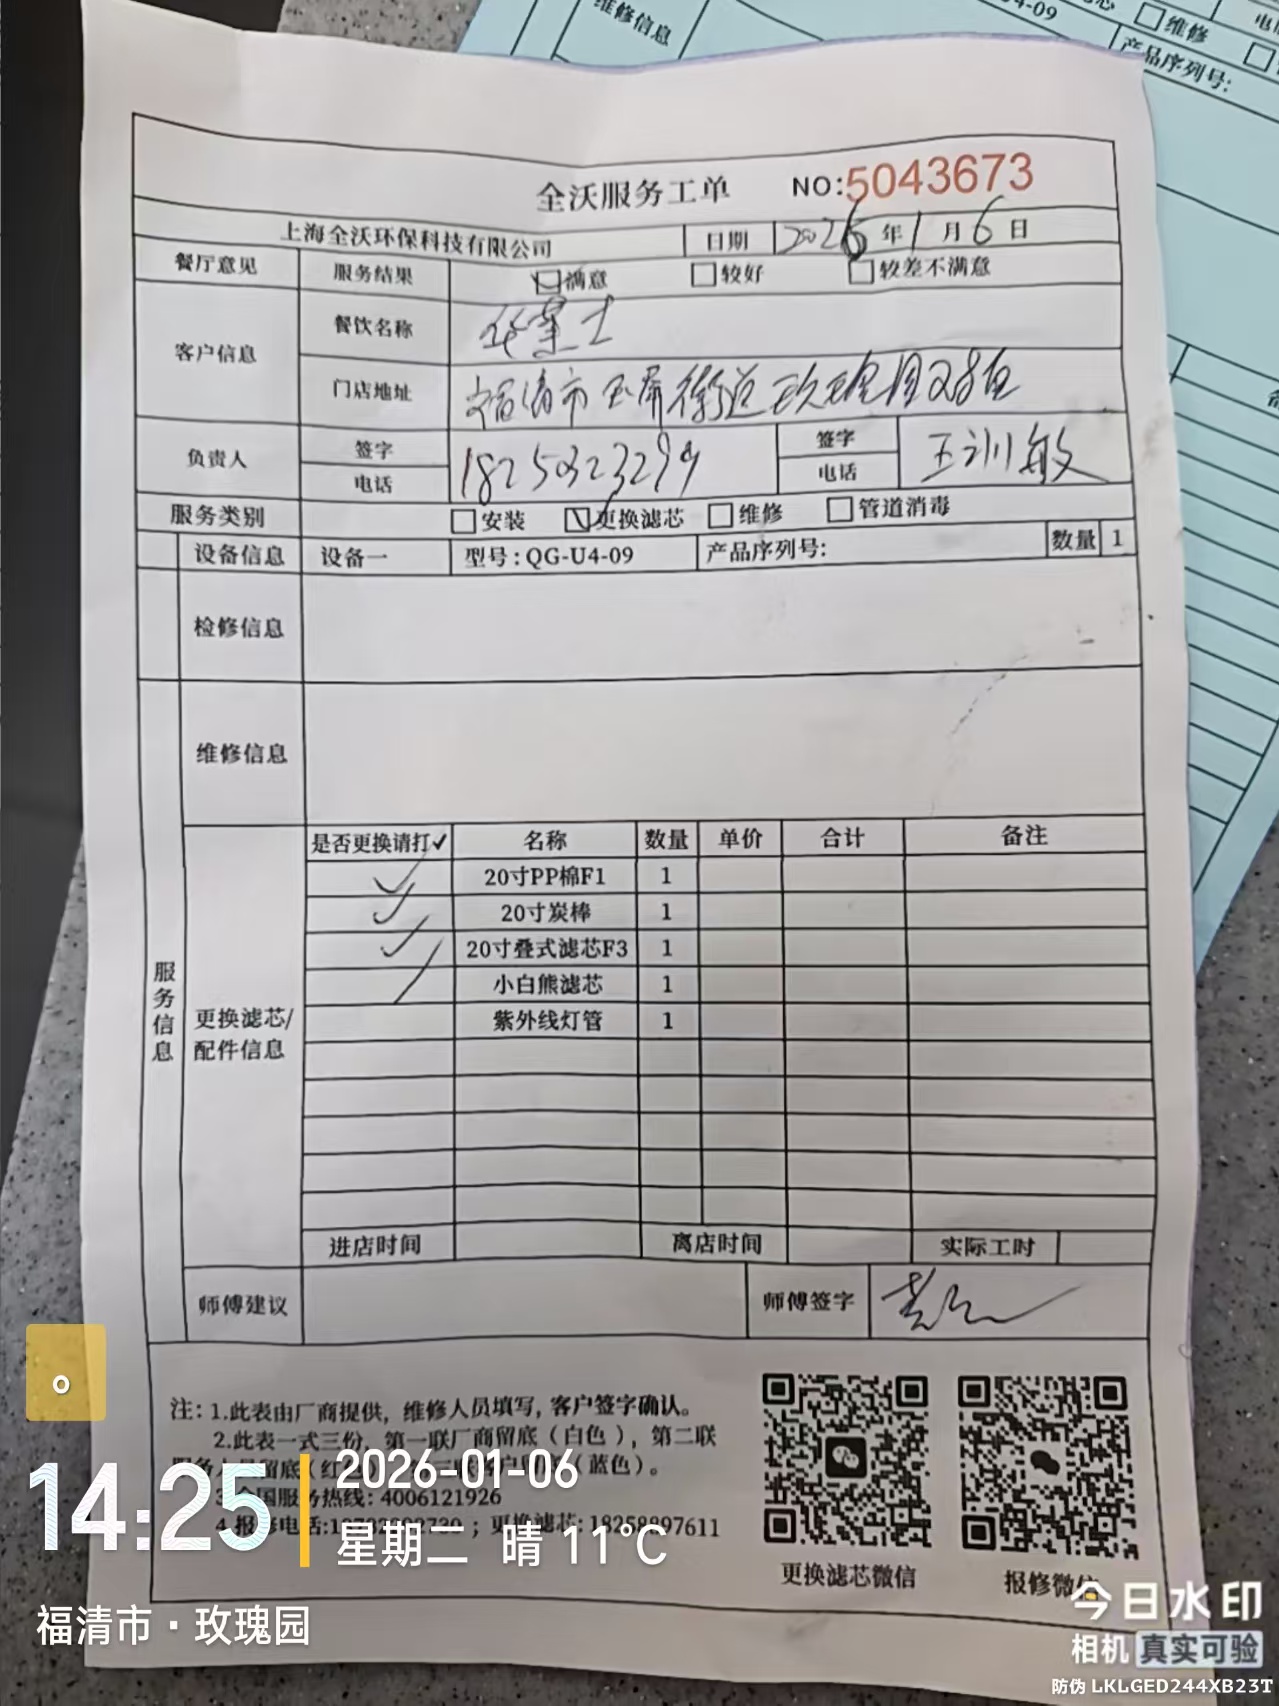 维修信息
4-09
维修
产品序列号:
全沃服务工单 NO:5043673
上海全沃环保科技有限公司 日期 2026年1月6日
餐厅意见 服务结果 满意 较好 较差不满意
客户信息 餐饮名称 华莱士
门店地址 福清市玉屏街道玫瑰园28
负责人 签字 电话 18250323299 签字 电话 王训敏
服务类别 安装 更换滤芯 维修 管道消毒
设备信息 设备一 型号:QG-U4-09 产品序列号: 数量 1
检修信息
维修信息
服务信息
更换滤芯/配件信息
是否更换请打✓ 名称 数量 单价 合计 备注
✓ 20寸PP棉F1 1
✓ 20寸炭棒 1
✓ 20寸叠式滤芯F3 1
✓ 小白熊滤芯 1
紫外线灯管 1
进店时间 离店时间 实际工时
师傅建议 师傅签字
注:1.此表由厂商提供,维修人员填写,客户签字确认。
2.此表一式三份,第一联厂商留底(白色),第二联
留底(红 (蓝色)。
全国服务热线:4006121926
4.报修电话: ;更换滤芯:18258897611
更换滤芯微信
报修微信
14:25
2026-01-06
星期二 晴 11°C
福清市·玫瑰园
今日水印
相机 真实可验
防伪 LKLGED244XB23T